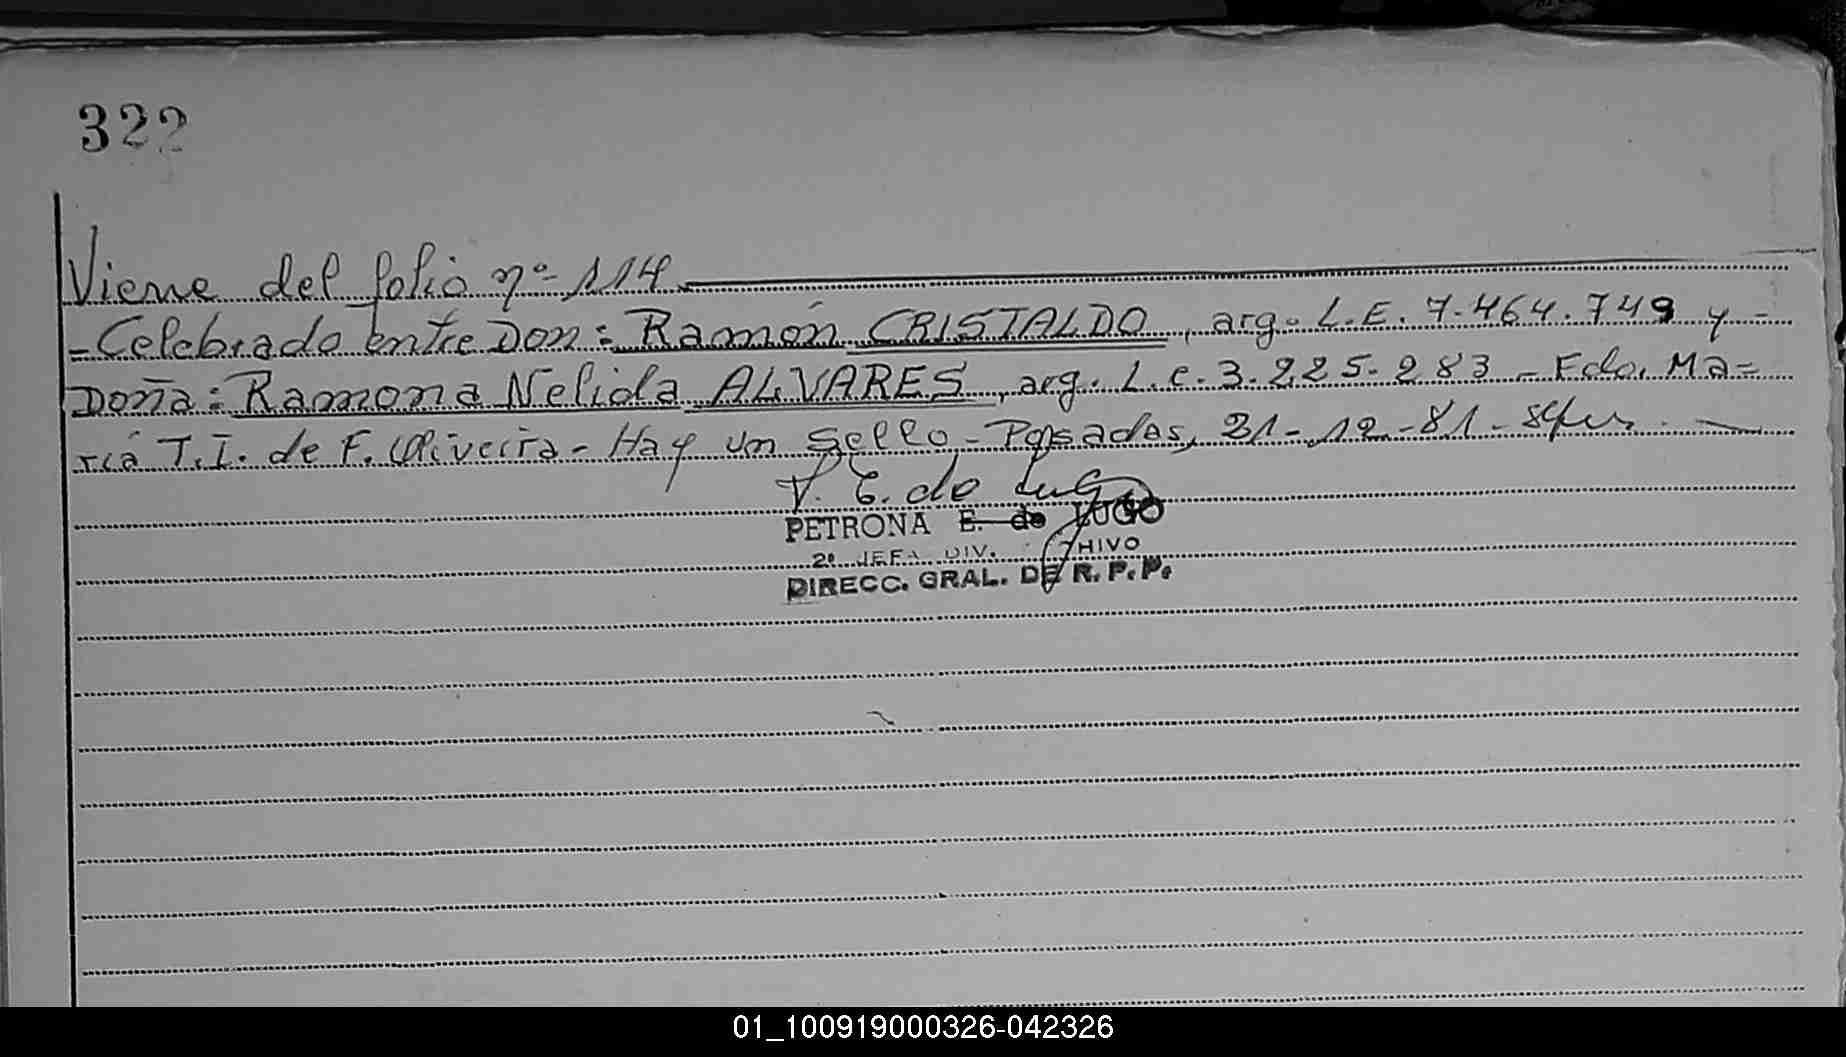 322
Viene del folio nº 114
- Celebrado entre Don: Ramón CRISTALDO, arg. L.E. 7.464.749 y -
Doña: Ramona Nelida ALVARES, arg. L.C. 3.225.283 - Fdo. Ma=
ria T.I. de F. Oliveira - Hay un sello - Posadas, 31-12-81 -
P. E. de Lugo
PETRONA E. de LUGO
2º JEFA DIV. HIVO
DIRECC. GRAL. DE R. P. P.
01_100919000326-042326